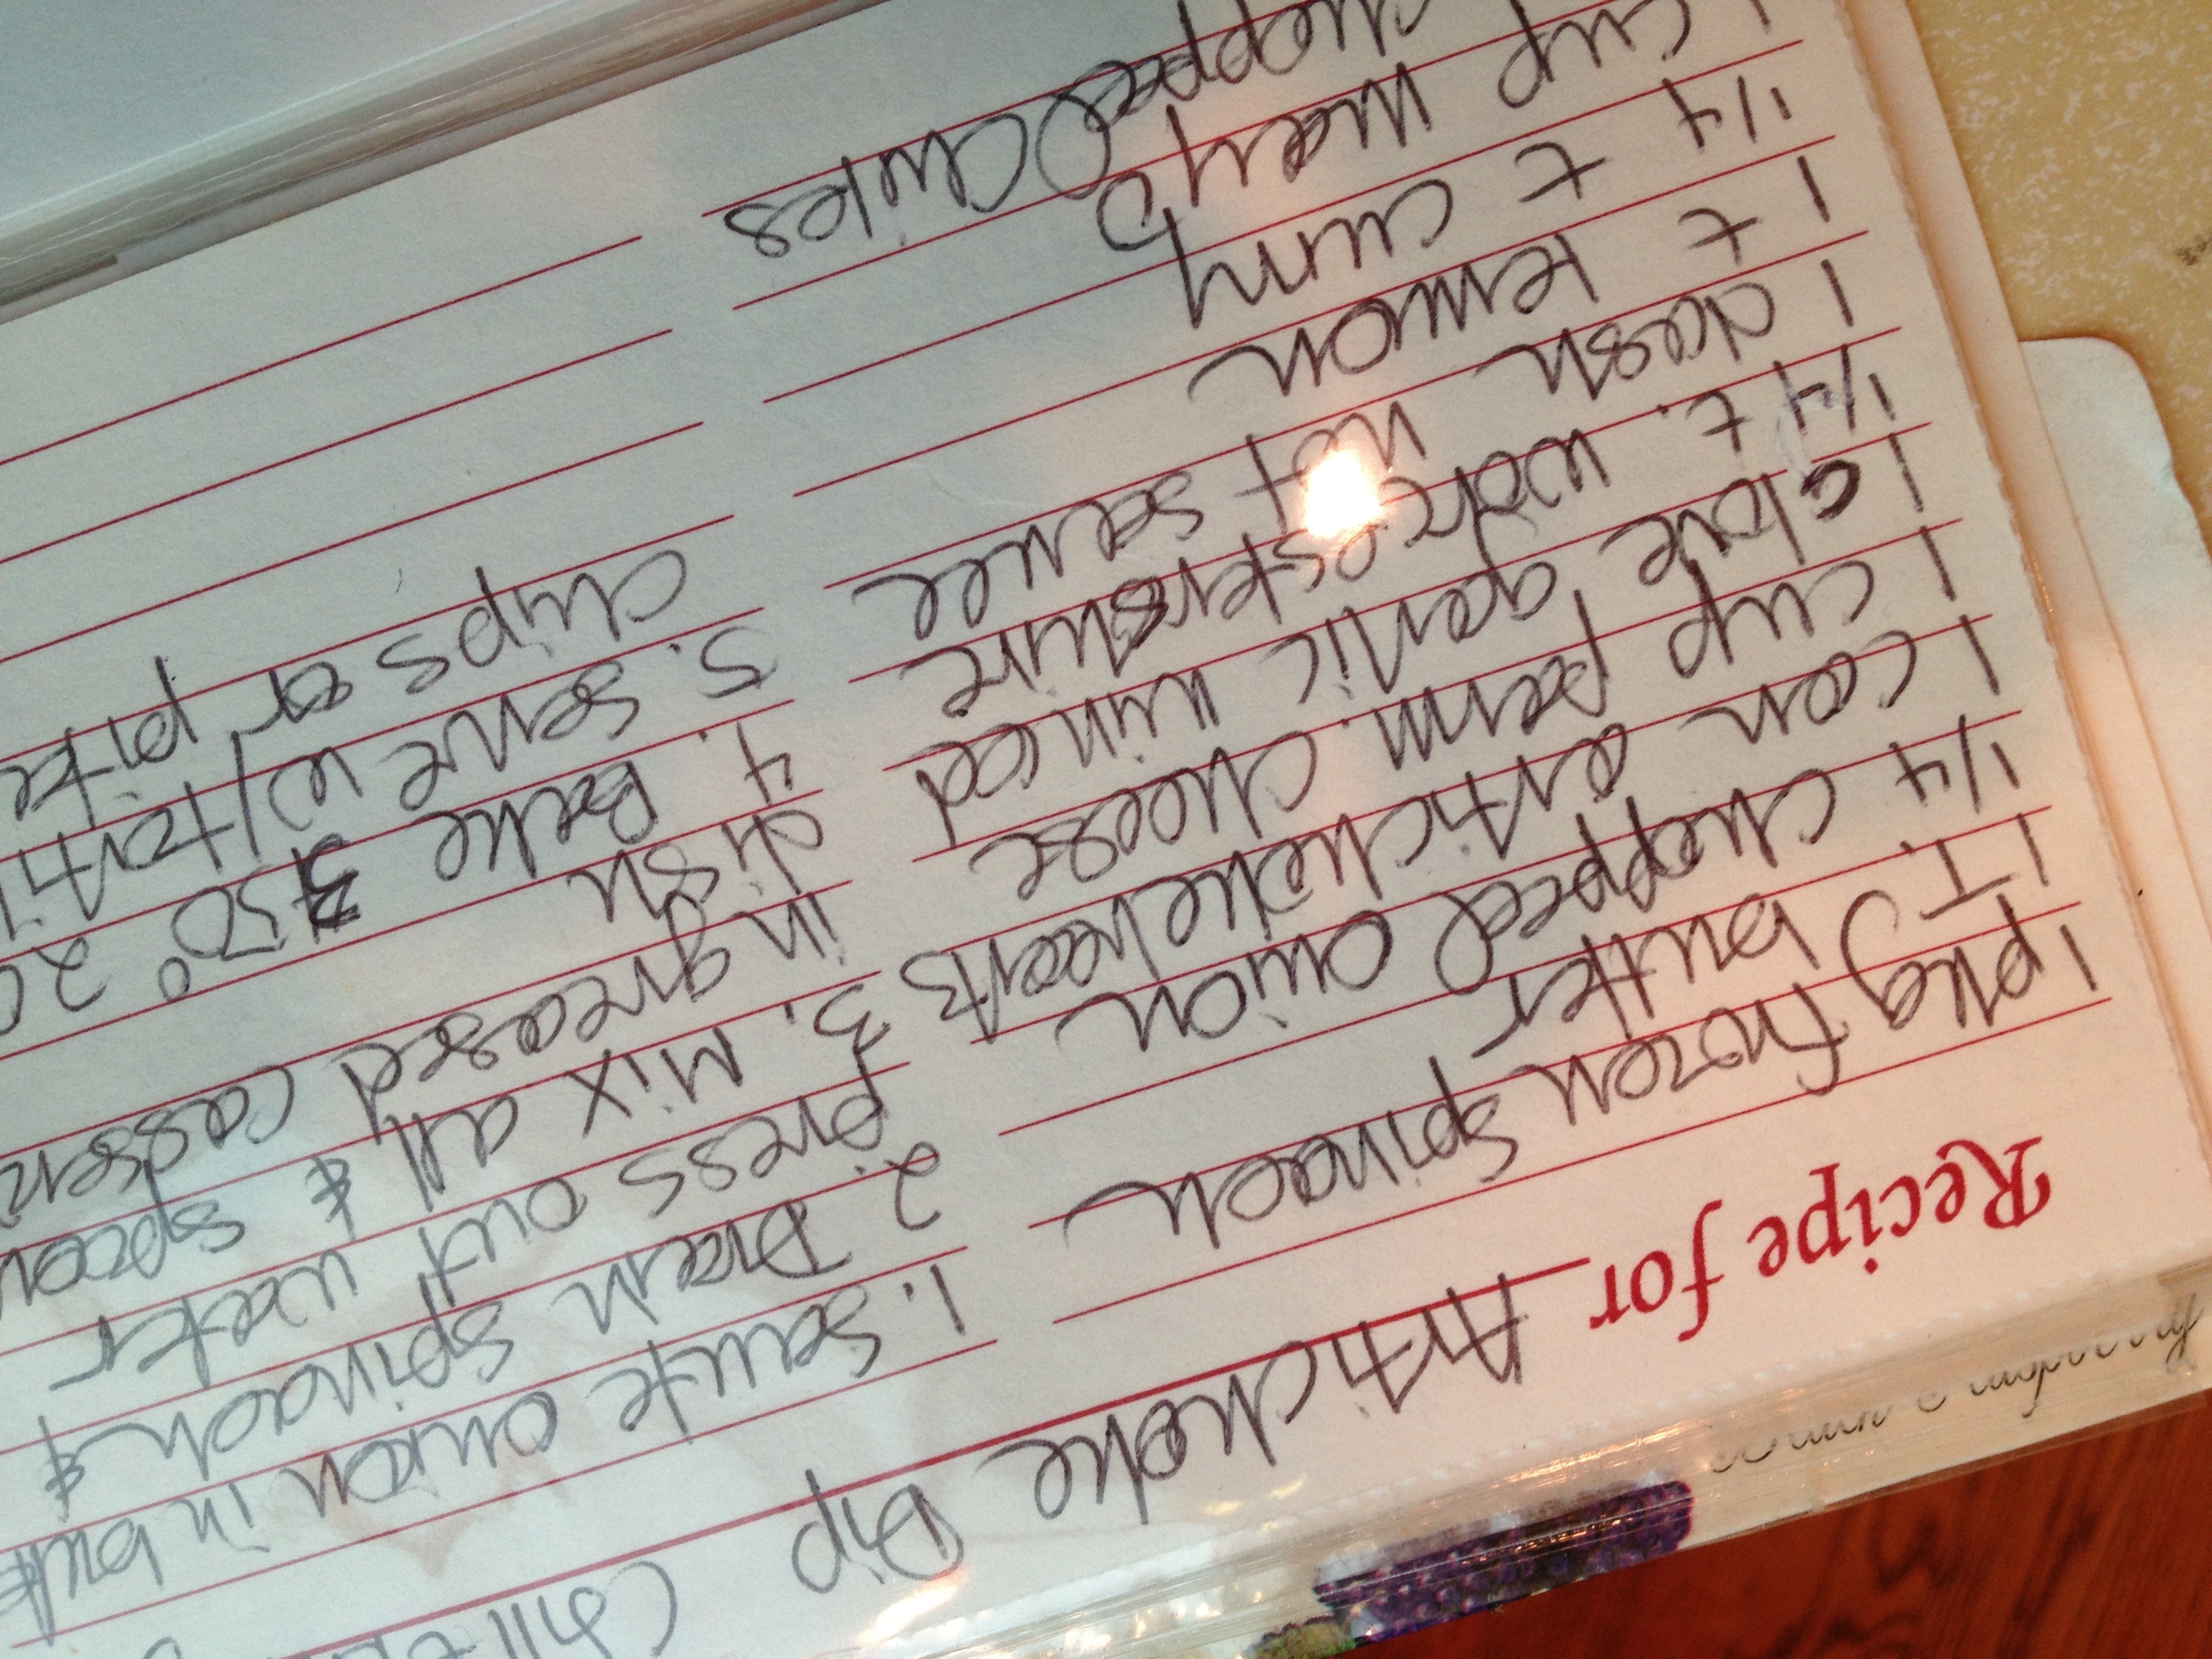 Recipe for Artichoke Dip
1 pkg frozen spinach
1 T. butter
1/4 chopped onion
1 can artichoke hearts
1 cup parm. cheese
1 clove garlic minced
1/4 t. worcestershire
1 dash hot sauce
1 t lemon
1/4 t curry
1 cup mayo
chopped chiles
1. Saute onion in butte
2. Drain spinach &
press out water
3. Mix all & spoon
in greased casser
dish
4. Bake 350° 20
5. Serve w/ torti
chips or pita